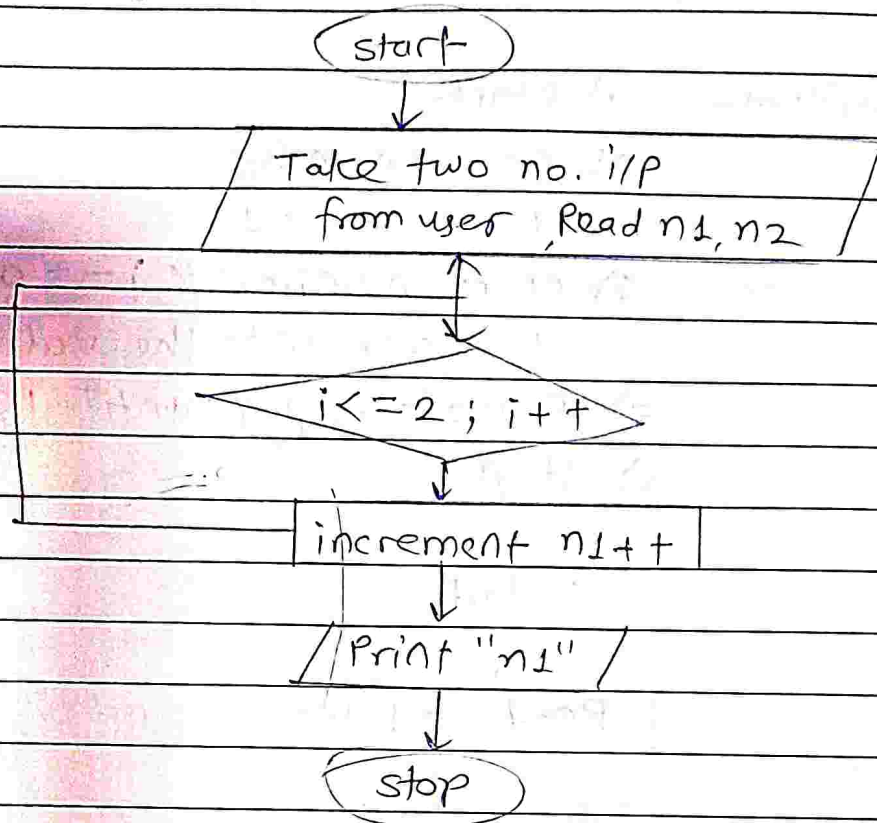 start
Take two no. i/p
from user, Read n1, n2
i<=2 ; i++
increment n1++
Print "n1"
stop